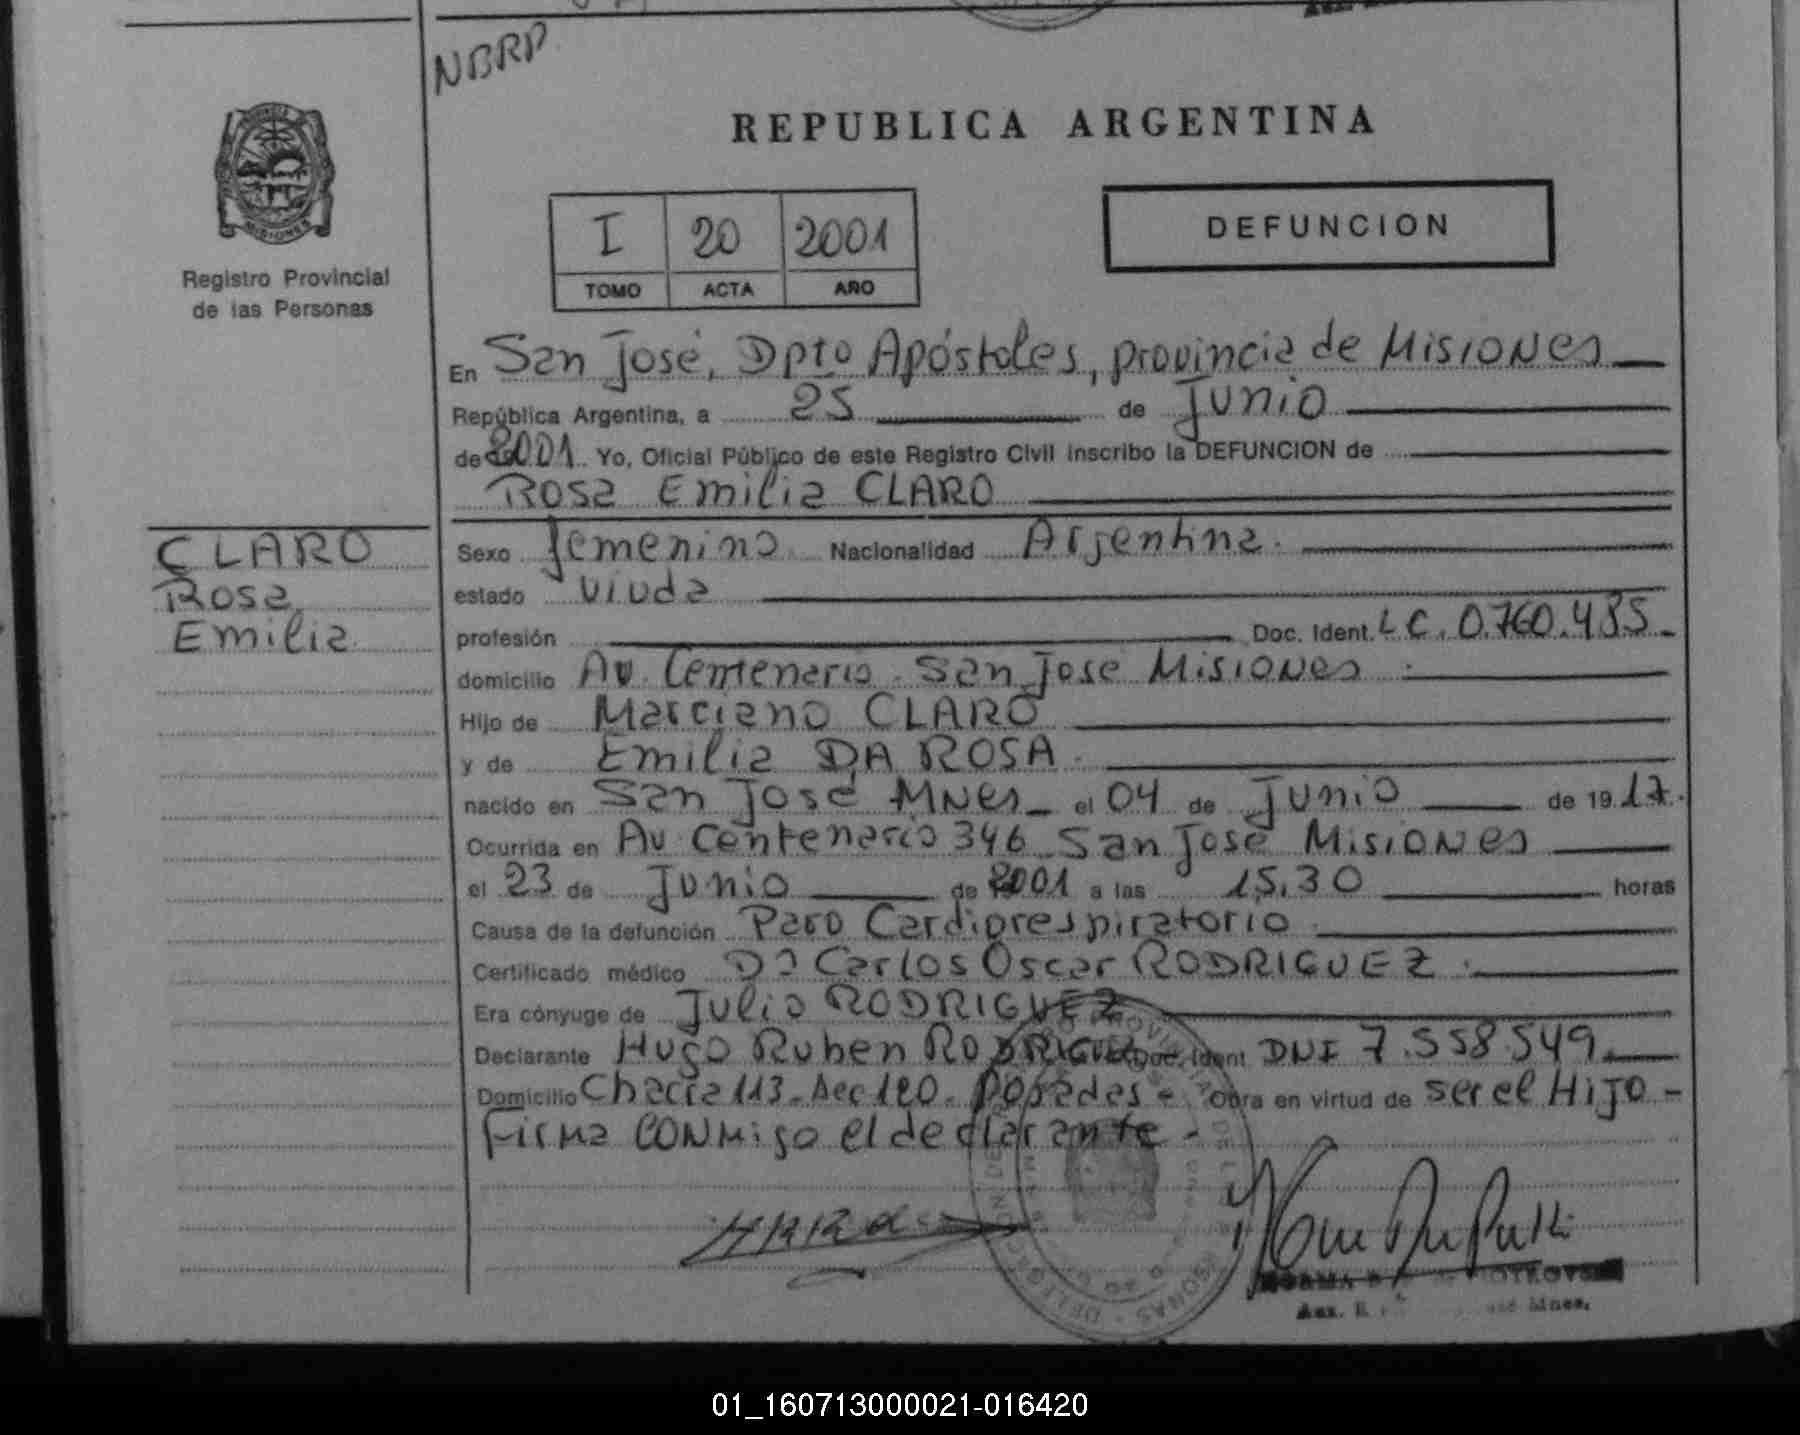 NBRP
REPUBLICA ARGENTINA
PROVINCIA
MISIONES
Registro Provincial
de las Personas
I 20 2001
TOMO ACTA AÑO
DEFUNCION
En San José, Dpto Apóstoles, provincia de Misiones
República Argentina, a 25 de Junio
de 2001. Yo, Oficial Público de este Registro Civil inscribo la DEFUNCION de
Rosa Emilia CLARO
CLARO
Rosa
Emilia
Sexo femenino Nacionalidad Argentina.
estado viuda
profesión Doc. Ident. LC. 0.760.485
domicilio Av. Centenario. San Jose Misiones
Hijo de Marciano CLARO
y de Emilia DA ROSA.
nacido en San José Mnes el 04 de Junio de 19 17.
Ocurrida en Av Centenario 346 San José Misiones
el 23 de Junio de 2001 a las 15.30 horas
Causa de la defunción Paro Cardiorespiratorio
Certificado médico Dº Carlos Oscar RODRIGUEZ.
Era cónyuge de Julio RODRIGUEZ
Declarante Hugo Ruben RODRIGUEZ Doc. Ident DNI 7.558.549.
Domicilio Chacra 113. Posadas - Obra en virtud de ser el Hijo -
firma conmigo el declarante -
NORMA
Aux. Mnes.
01_160713000021-016420